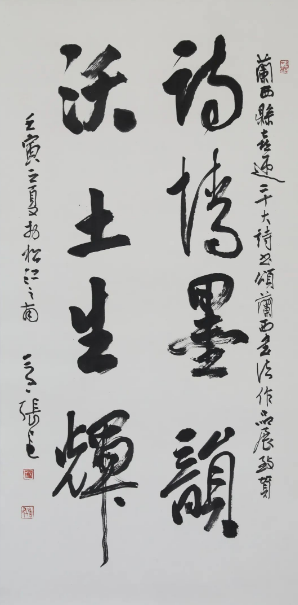 蘭西縣喜迎二十大詩書頌蘭西書法作品展致賀
詩情墨韻
沃土生輝
壬寅之夏於松江之南
張